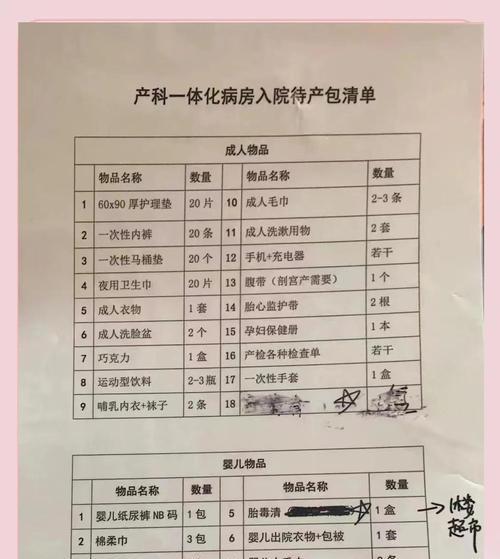 产科一体化病房入院待产包清单
成人物品
物品名称 数量 物品名称 数量
1 60x90 厚护理垫 20 片 10 成人毛巾 2-3 条
2 一次性内裤 20 条 11 成人洗漱用物 2 套
3 一次性马桶垫 20 个 12 手机+充电器 若干
4 夜用卫生巾 20 片 13 腹带（剖宫产需要） 1 个
5 成人衣物 1 套 14 胎心监护带 2 根
6 成人洗脸盆 2 个 15 孕妇保健册 1 本
7 巧克力 1 盒 16 产检各种检查单 若干
8 运动型饮料 2-3 瓶 17 一次性手套 1 盒
9 哺乳内衣+袜子 2 条 18
婴儿物品
物品名称 数量 物品名称 数量
1 婴儿纸尿裤 NB 码 1 包 5 胎毒清 1 盒
超市
2 棉柔巾 3 包 6 婴儿出院衣物+包被 1 套